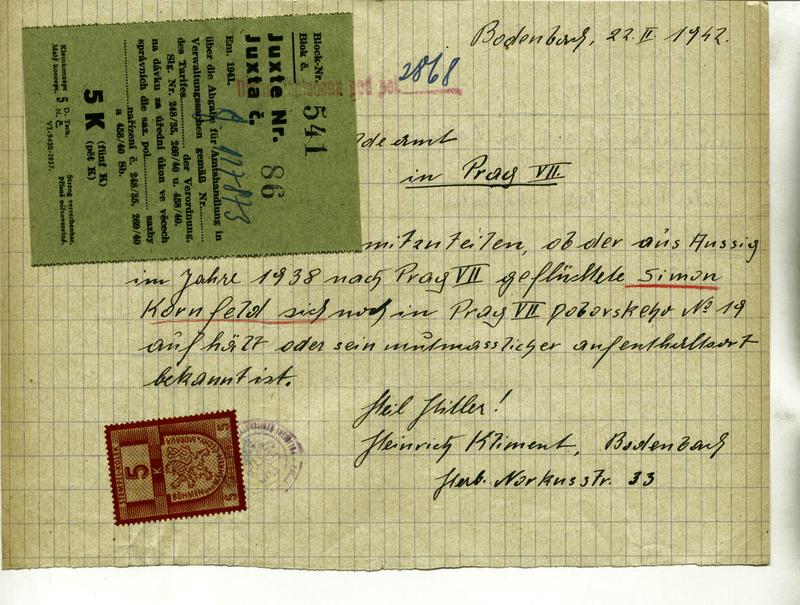 Bodenbach, 22. II. 1942.
2868
pod poř.
deamt
in Prag VII.
mitanteilen, ob der aus Aussig
im Jahre 1938 nach Prag VII geflüchtete Simon
Kornfeld sich noch in Prag VII Poborskeho No 19
aufhält oder sein mutmasslicher aufenthaltsort
bekannt ist.
Heil Hitler!
Heinrich Kliment, Bodenbach
Herb. Norkusstr. 33
Block-Nr.
Blok č.
541
Juxte Nr.
Juxta č.
86
Em. 1941.
117873
über die Abgabe für Amtshandlung in
Verwaltungssachen gemäß Nr.
des Tarifes der Verordnung,
Slg. Nr. 248/35, 269/40 u. 458/40.
na dávku za úřední úkon ve věcech
správních dle saz. pol. sazby
nařízení č. 248/35, 269/40
a 458/40 Sb.
5 K (fünf K)
(pět K)
Kleinkonzeps 5 D. Tsch.
Malý konceps. 5 N. Č.
VI-9450-1937.
Streng verrechenbar.
Přísně zúčtovatelné.
STEMPEL KOLEK
5 K
BÖHMEN UND MÄHREN
ČECHY A MORAVA
5
5